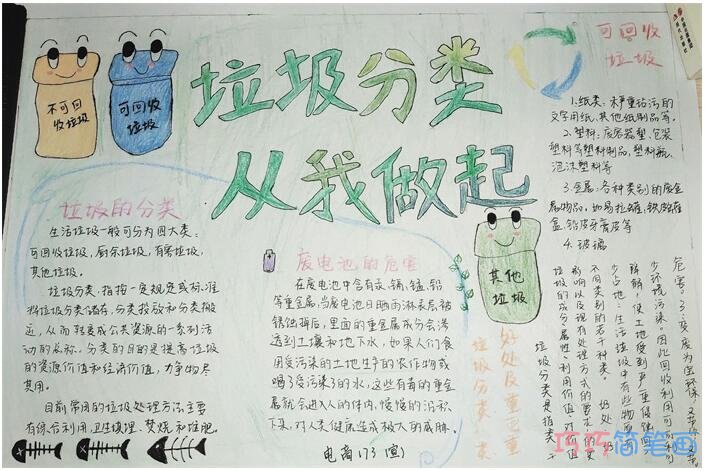 垃圾分类
从我做起
不可回
收垃圾
可回收
垃圾
其他
垃圾
垃圾的分类
生活垃圾一般可分为四大类:
可回收垃圾,厨余垃圾,有害垃圾,
其他垃圾。
垃圾分类,指按一定规定或标准
将垃圾分类储存,分类投放和分类搬
运,从而转变成公共资源的一系列活
动的总称,分类的目的是提高垃圾
的资源价值和经济价值,力争物尽
其用。
目前常用的垃圾处理方法主要
有综合利用、卫生填埋、焚烧和堆肥。
废电池的危害
在废电池中含有汞、镉、锰、铅
等重金属,当废电池日晒雨淋表层被
锈蚀掉后,里面的重金属成分会渗
透到土壤和地下水,如果人们食
用受污染的土地生产的农作物或
喝了受污染了的水,这些有毒的重金
属就会进入人的体内,慢慢的沉积
下来,对人类健康造成极大的威胁。
电商173
可回收
垃圾
1.纸类:未严重玷污的
文字用纸、其他纸制品等。
2.塑料:废容器塑、包装
塑料等塑料制品,塑料瓶,
泡沫塑料等
3.金属:各种类别的废金
属物品。如易拉罐、铁皮罐
盒、铅皮牙膏皮等
4.玻璃
垃圾分类
好处及重要
垃圾分类是指按
垃圾的成分、属性、利用价值、对环
影响以及现有处理方式的要求,分
不同类别的若干种类。
少占地:生活垃圾中有些物质不
降解,使土地受到严重侵蚀
少环境污染。因此回收利用可以
危害。3.变废为宝
巧巧简笔画